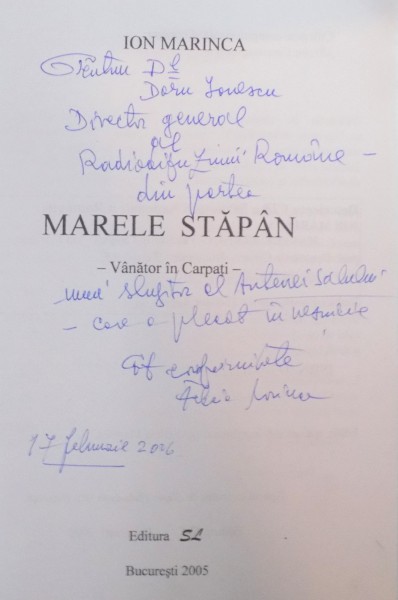 ION MARINCA
Pentru Dl
Doru Ionescu
Director general
al
Radiodifuziunii Române –
din partea
MARELE STĂPÂN
– Vânător în Carpați –
unui slujitor al Antenei Satului
– care a plecat în nesimțire
17 februarie 2006
Editura SL
București 2005